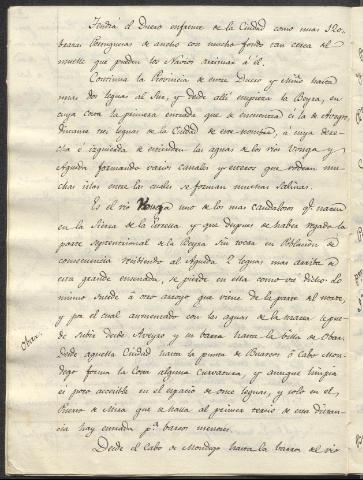 Tendrá el Duero enfrente de la Ciudad como unas 120
brazas Portuguesas de ancho con mucho fondo tan cerca al
muelle que pueden los Navios arrimar á él.
Continua la Provincia de entre Duero y Miño hasta
mas dos leguas al Sur, y desde alli empieza la Beyra, en
cuya costa la primera entrada que se encuentra es la de Aveyro,
distante tres leguas de la Ciudad de este nombre, á cuya dere-
cha é izquierda se extienden las aguas de los rios Vouga y
Agueda formando varios canales y esteros que rodean mu-
chas islas entre las cuales se forman muchas Salinas.
Es el rio Vouga uno de los mas caudalosos qe. nacen
en la Sierra de la y que despues de haber regado la
parte septentrional de la Beyra sin tocar en Poblacion de
consecuencia recibiendo al Agueda 2 leguas mas arriba de
esta grande ensenada, se pierde en ella como va dicho. Lo
mismo sucede á otro arroyo que viene de la parte del norte,
y por el cual aumentado con las aguas de la marea se pue-
de subir desde Aveyro y su barra hasta la billa de Obar.
Obar.
Desde aquella Ciudad hasta la punta de Buarcos ó Cabo Mon-
dego forma la Costa alguna curvatura, y aunque limpia
es poco accesible en el espacio de once leguas, y solo en el
Puerto de Mira que se halla al primer tercio de esta distan-
cia hay entrada pa. barcos menores.
Desde el Cabo de Mondego hasta la barra del rio